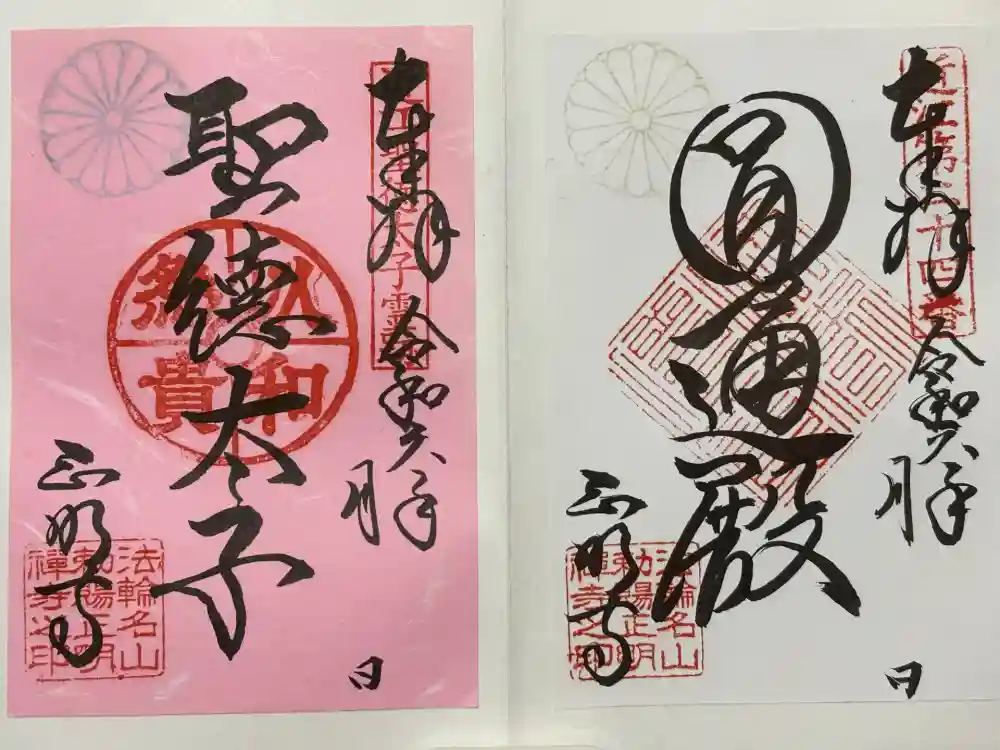 奉拝
令和六年
月
日
圓通殿
正明寺
法輪名山
勅賜正明
禪寺之印
奉拝
令和六年
月
日
聖徳太子
以和
為貴
正明寺
法輪名山
勅賜正明
禪寺之印